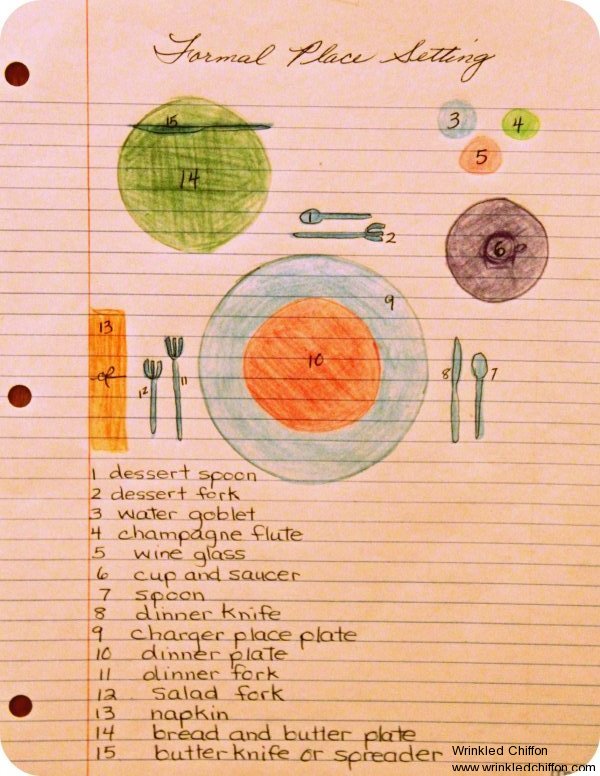 Formal Place Setting
15
3
4
14
5
1
2
6
9
13
10
8
7
12
11
1 dessert spoon
2 dessert fork
3 water goblet
4 champagne flute
5 wine glass
6 cup and saucer
7 spoon
8 dinner knife
9 charger place plate
10 dinner plate
11 dinner fork
12 salad fork
13 napkin
14 bread and butter plate
15 butter knife or spreader
Wrinkled Chiffon
www.wrinkledchiffon.com